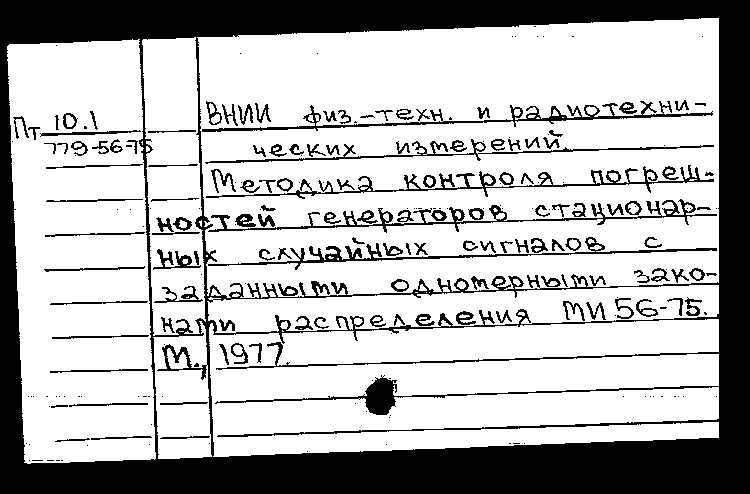 Пт 10.1
779-56-75
ВНИИ физ.-техн. и радиотехни-
ческих измерений.
Методика контроля погреш-
ностей генераторов стационар-
ных случайных сигналов с
заданными одномерными зако-
нами распределения МИ 56-75.
М., 1977.